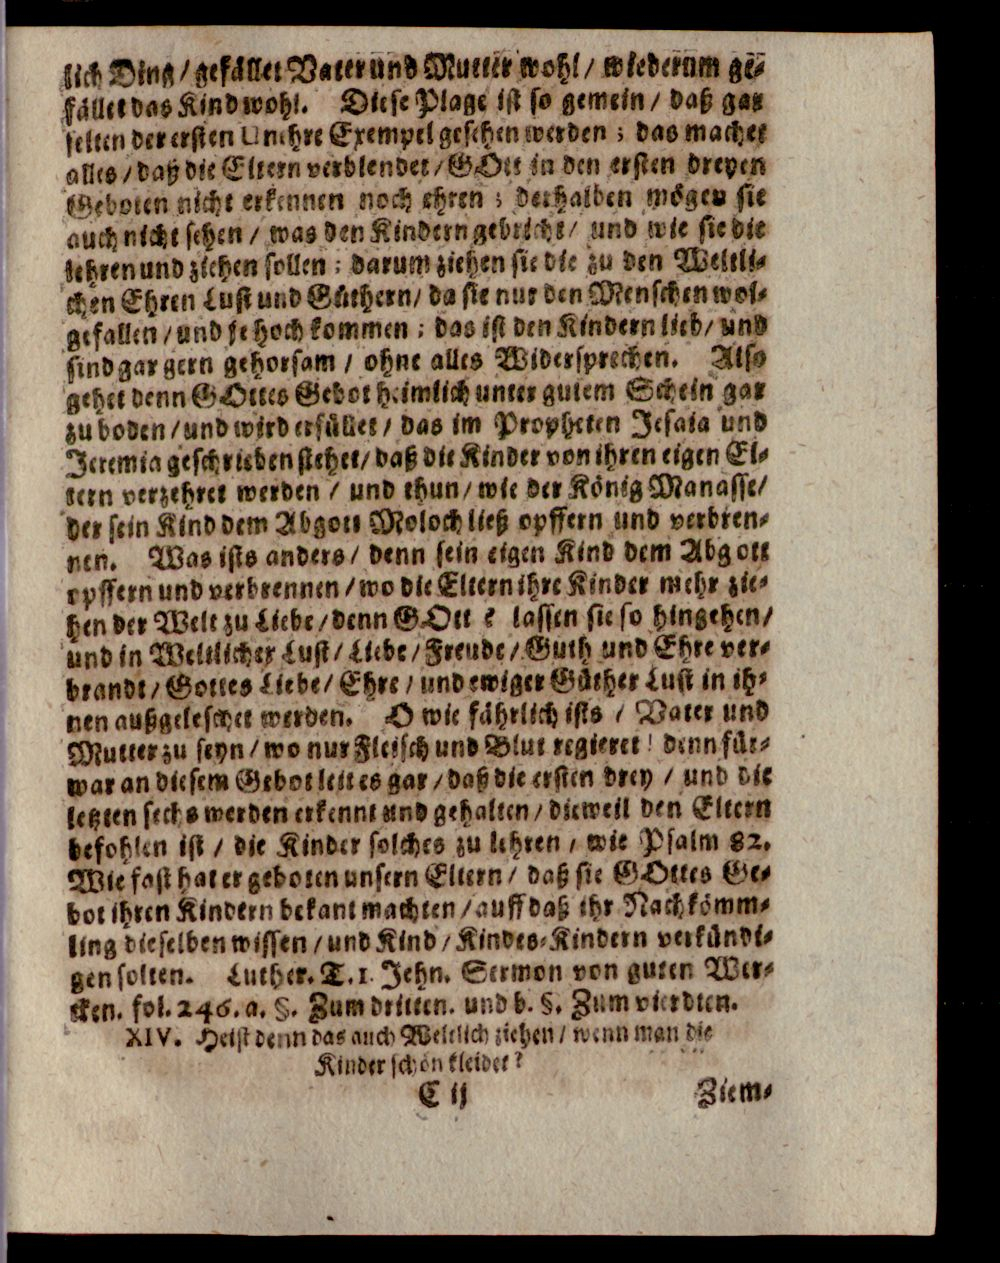 lich Ding / gefället Vater und Mutter wohl / wiederum ge-
fället das Kind wohl. Diese Plage ist so gemein / daß gar
selten der ersten Unehre Exempel gesehen werden ; das machet
alles / daß die Eltern verblendet / GOtt in den ersten dreyen
Geboten nicht erkennen noch ehren ; derhalben mögen sie
auch nicht sehen / was den Kindern gebricht / und wie sie die
lehren und ziehen sollen ; darum ziehen sie die zu den Weltli-
chen Ehren Lust und Güthern / da sie nur den Menschen wol-
gefallen / und je hoch kommen ; das ist den Kindern lieb / und
sind gar gern gehorsam / ohne alles Widersprechen. Also
gehet denn GOttes Gebot heimlich unter gutem Schein gar
zu boden / und wird erfüllet / das im Propheten Jesaia und
Jeremia geschrieben stehet / daß die Kinder von ihren eigen El-
tern verzehret werden / und thun / wie der König Manasse /
der sein Kind dem Abgott Moloch ließ opffern und verbren-
nen. Was ists anders / denn sein eigen Kind dem Abgott
opffern und verbrennen / wo die Eltern ihre Kinder mehr zie-
hen der Welt zu Liebe / denn GOtt ? lassen sie so hingehen /
und in Weltlicher Lust / Liebe / Freude / Guth und Ehre ver-
brandt / Gottes Liebe / Ehre / und ewiger Güther Lust in ih-
nen außgeleschet werden. O wie fährlich ists / Vater und
Mutter zu seyn / wo nur Fleisch und Blut regieret ! denn für-
war an diesem Gebot leit es gar / daß die ersten drey / und die
letzten sechs werden erkennt und gehalten / dieweil den Eltern
befohlen ist / die Kinder solches zu lehren / wie Psalm 82.
Wie fast hat er geboten unsern Eltern / daß sie GOttes Ge-
bot ihren Kindern bekant machten / auff daß ihr Nachkömm-
ling dieselben wissen / und Kind / Kindes-Kindern verkündi-
gen solten. Luther. T. 1. Jehn. Sermon von guten Wer-
cken. fol. 246. a. §. Zum dritten. und b. §. Zum vierdten.
XIV. Heist denn das auch Weltlich ziehen / wenn man die
Kinder schön kleidet ?
C ij Ziem-